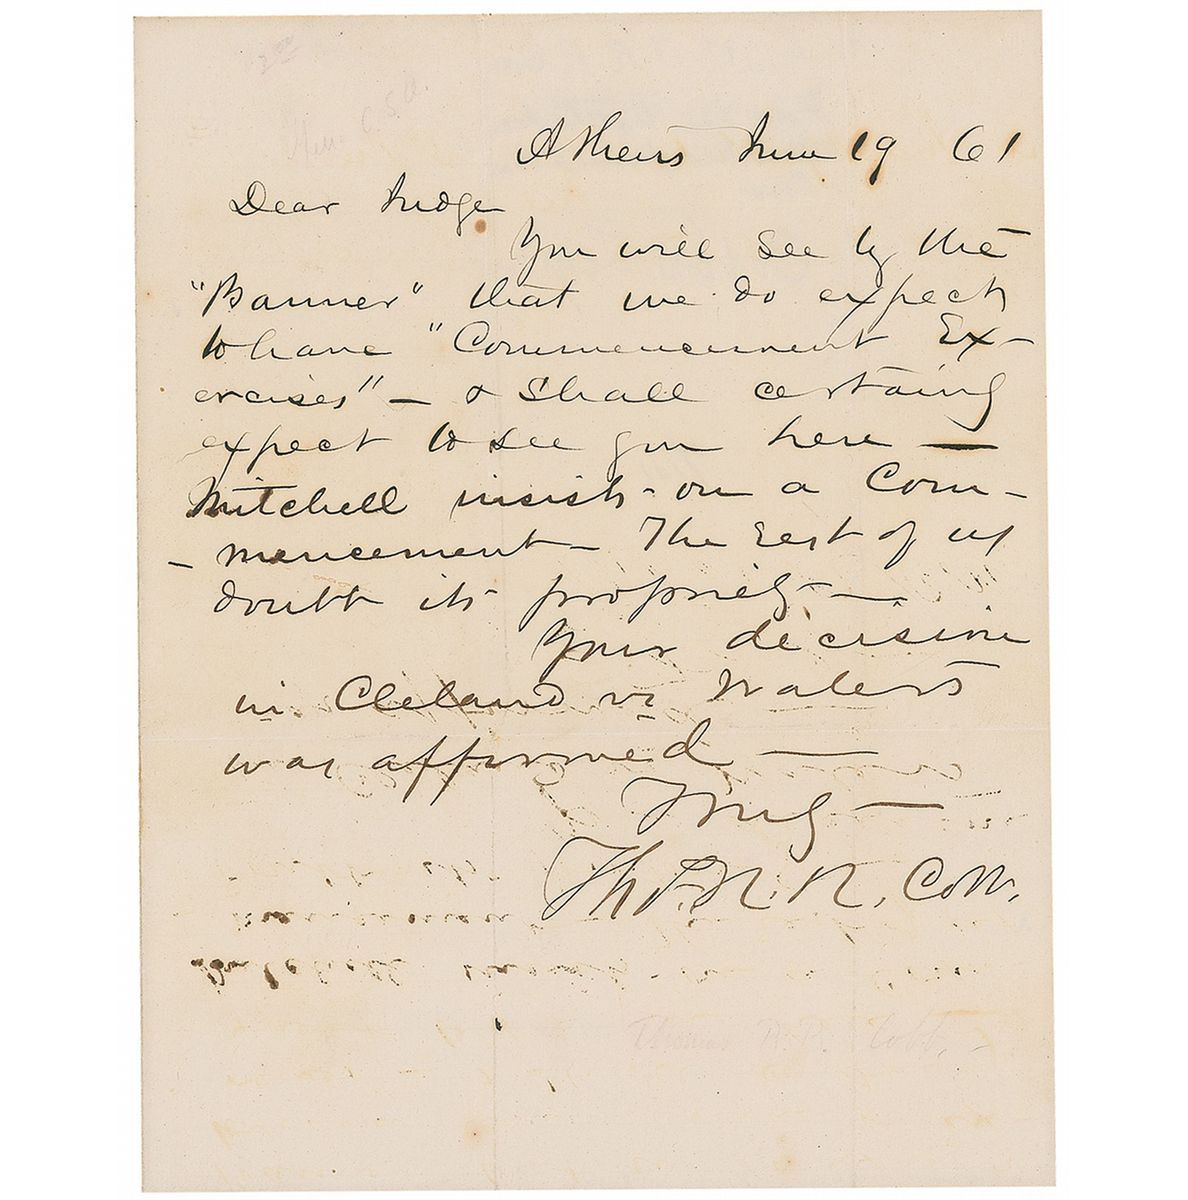 Athens June 19 61
Dear Judge
You will see by the
"Banner" that we do expect
to have "Commencement Ex-
ercises" — & shall certainly
expect to see you here —
Mitchell insists on a Com-
- mencement — The rest of us
doubt its propriety —
Your decision
in Cleland vs Waters
was affirmed —
Truly —
Thos. R. R. Cobb.
Thomas R. R. Cobb. -